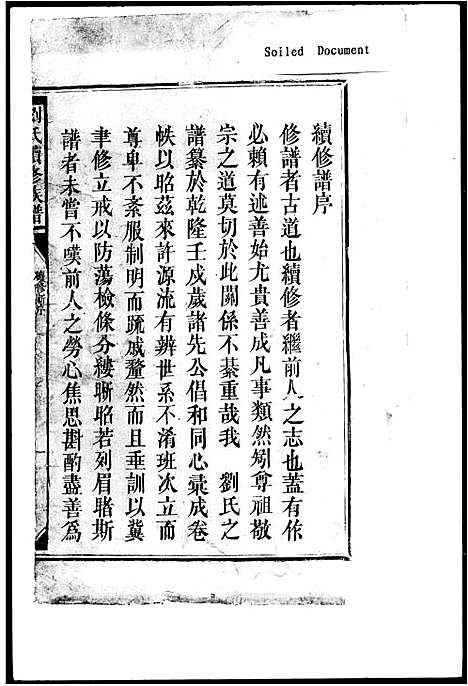 Soiled Document
續修譜序
修譜者古道也續修者繼前人之志也蓋有作
必賴有述善始尤貴善成凡事類然矧尊祖敬
宗之道莫切於此關係不綦重哉我 劉氏之
譜纂於乾隆壬戍歲諸先公倡和同心彙成卷
帙以昭茲來許源流有辨世系不淆班次立而
尊卑不紊服制明而疏戚釐然而且垂訓以冀
聿修立戒以防蕩檢條分縷晰昭若列眉睹斯
譜者未嘗不嘆前人之勞心焦思斟酌盡善為
劉氏續修族譜
續修譜序